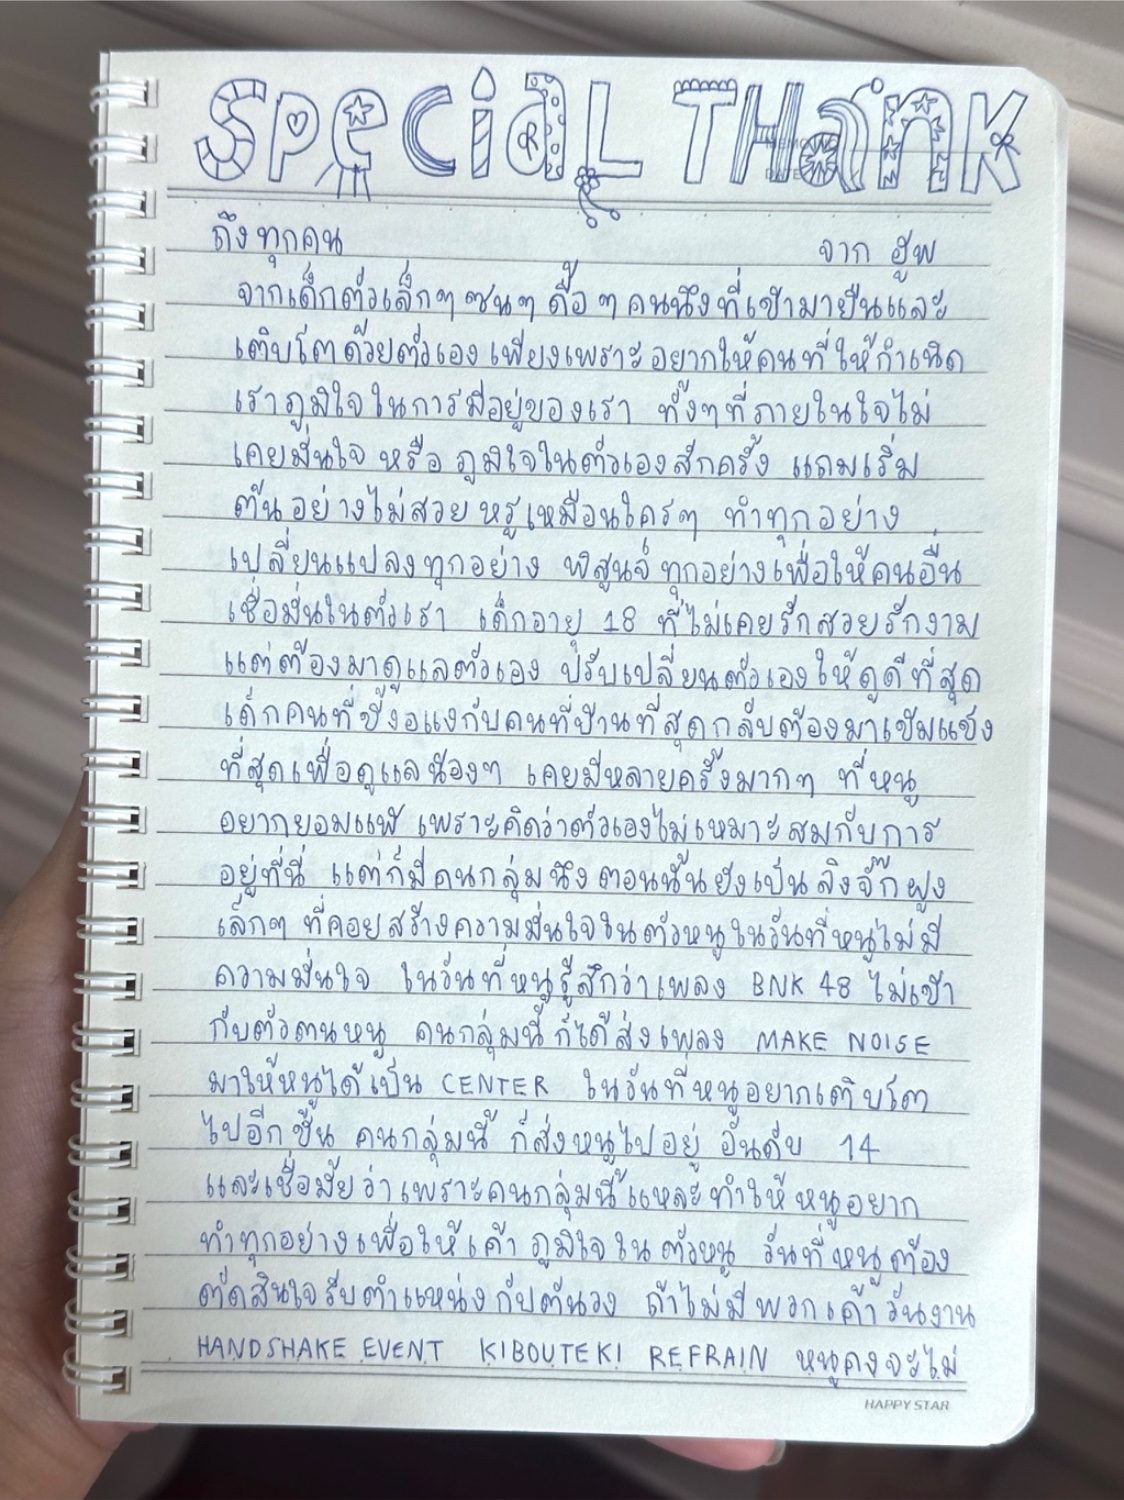 SPECIAL THANK
ถึง ทุกคน จาก ฮูพ
จากเด็กตัวเล็กๆ ซนๆ ดื้อๆ คนนึงที่เข้ามายืนและ
เติบโตด้วยตัวเอง เพียงเพราะอยากให้คนที่ให้กำเนิด
เราภูมิใจในการมีอยู่ของเรา ทั้งๆที่ภายในใจไม่
เคยมั่นใจ หรือ ภูมิใจในตัวเองสักครั้ง แถมเริ่ม
ต้นอย่างไม่สวยหรูเหมือนใครๆ ทำทุกอย่าง
เปลี่ยนแปลงทุกอย่าง พิสูนจ์ ทุกอย่างเพื่อให้คนอื่น
เชื่อมั่นในตัวเรา เด็กอายุ 18 ที่ไม่เคยรักสวยรักงาม
แต่ต้องมาดูแลตัวเอง ปรับเปลี่ยนตัวเองให้ดูดีที่สุด
เด็กคนที่ขี้งอแงกับคนที่บ้านที่สุดกลับต้องมาเข้มแข็ง
ที่สุดเพื่อดูแลน้องๆ เคยมีหลายครั้งมากๆ ที่หนู
อยากยอมแพ้ เพราะคิดว่าตัวเองไม่เหมาะสมกับการ
อยู่ที่นี่ แต่ก็มีคนกลุ่มนึง ตอนนั้นยังเป็น ลิงจั๊กฝูง
เล็กๆ ที่คอยสร้างความมั่นใจในตัวหนูในวันที่หนูไม่มี
ความมั่นใจ ในวันที่หนูรู้สึกว่าเพลง BNK 48 ไม่เข้า
กับตัวตนหนู คนกลุ่มนี้ ก็ได้ส่งเพลง MAKE NOISE
มาให้หนูได้เป็น CENTER ในวันที่หนูอยากเติบโต
ไปอีกขั้น คนกลุ่มนี้ ก็ส่งหนูไปอยู่ อันดับ 14
และเชื่อมั้ยว่าเพราะคนกลุ่มนี้แหละทำให้หนูอยาก
ทำทุกอย่างเพื่อให้เค้า ภูมิใจใน ตัวหนู วันที่หนูต้อง
ตัดสินใจรับตำแหน่งกัปตันวง ถ้าไม่มีพวกเค้าวันงาน
HANDSHAKE EVENT KIBOUTEKI REFRAIN หนูคงจะไม่
HAPPY STAR